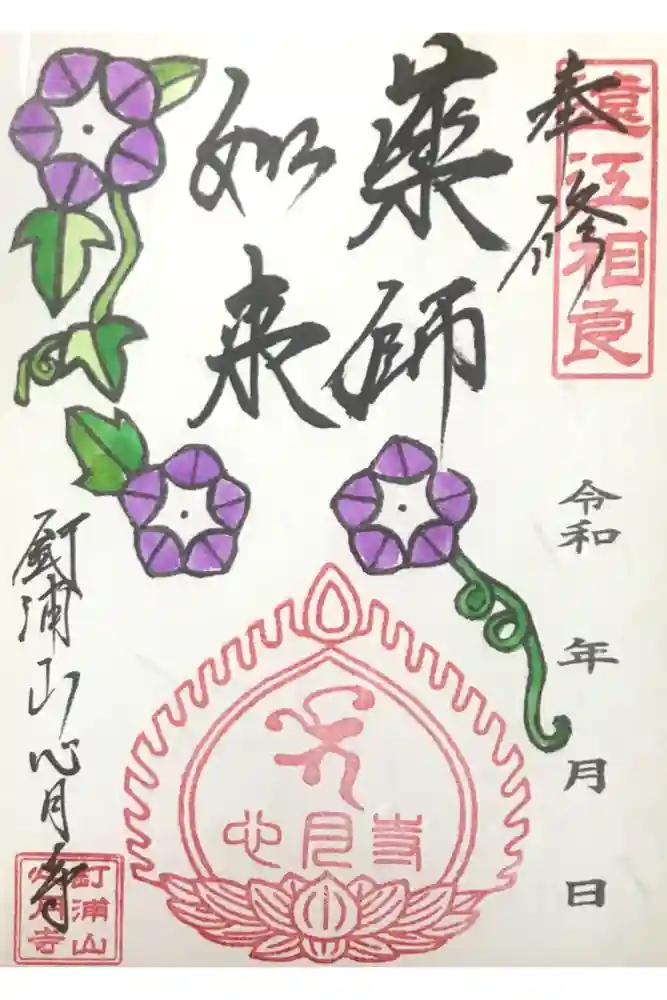 遠江相良
奉修
令和　年　月　日
薬師
如来
心月寺
釘浦山心月寺
釘浦山
心月寺